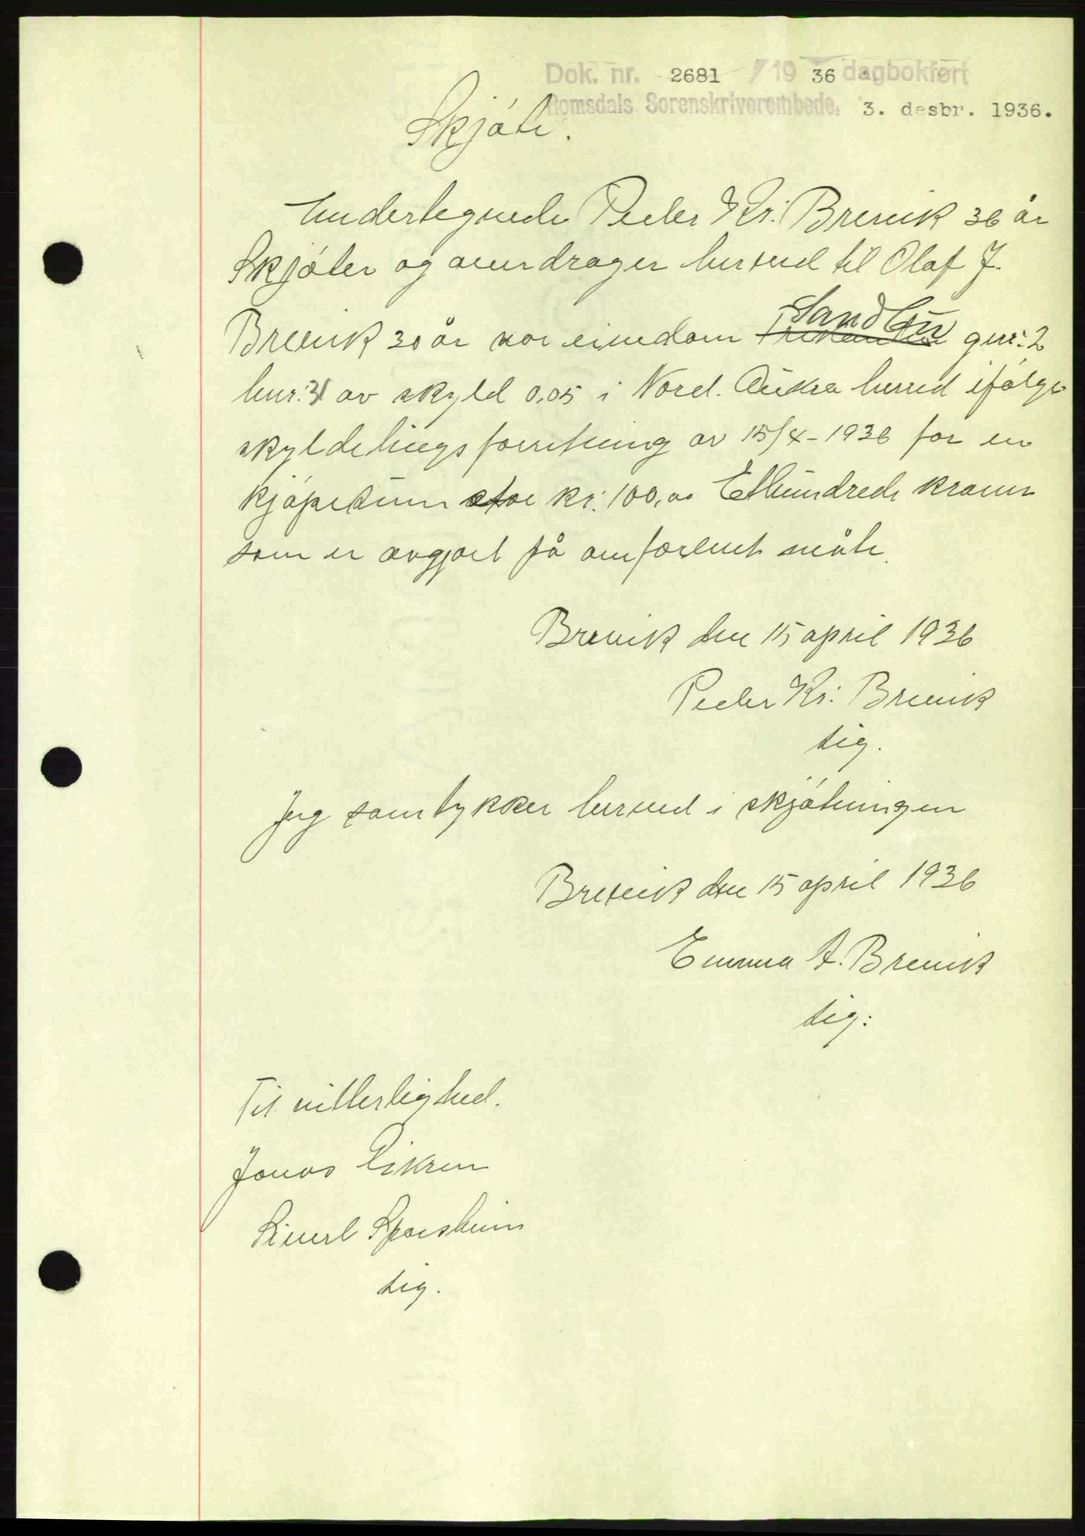 Dok. nr. 2681 / 19 36 dagbokført
Romsdals Sorenskriverembede, 3. desbr. 1936.
Skjøte.
Undertegnede Peder Kr: Brevik 36 år
Skjøter og overdrager herved til Olaf J.
Brevik 30 år vor eiendom Sandbu gnr: 2
bnr: 31 av skyld 0,05 i Nord. Aukra herred ifølge
skyldelingsforretning av 15/4-1936 for en
kjøpesum stor kr: 100,00 Ethundrede kroner
som er avgjort på omforent måte.
Brevik den 15 april 1936
Peder Kr: Brevik
sig.
Jeg samtykker herved i skjøtningen
Brevik den 15 april 1936
Emma A. Brevik
sig:
Til vitterlighed.
Jonas Eikrem
Sivert Sporsheim
sig.